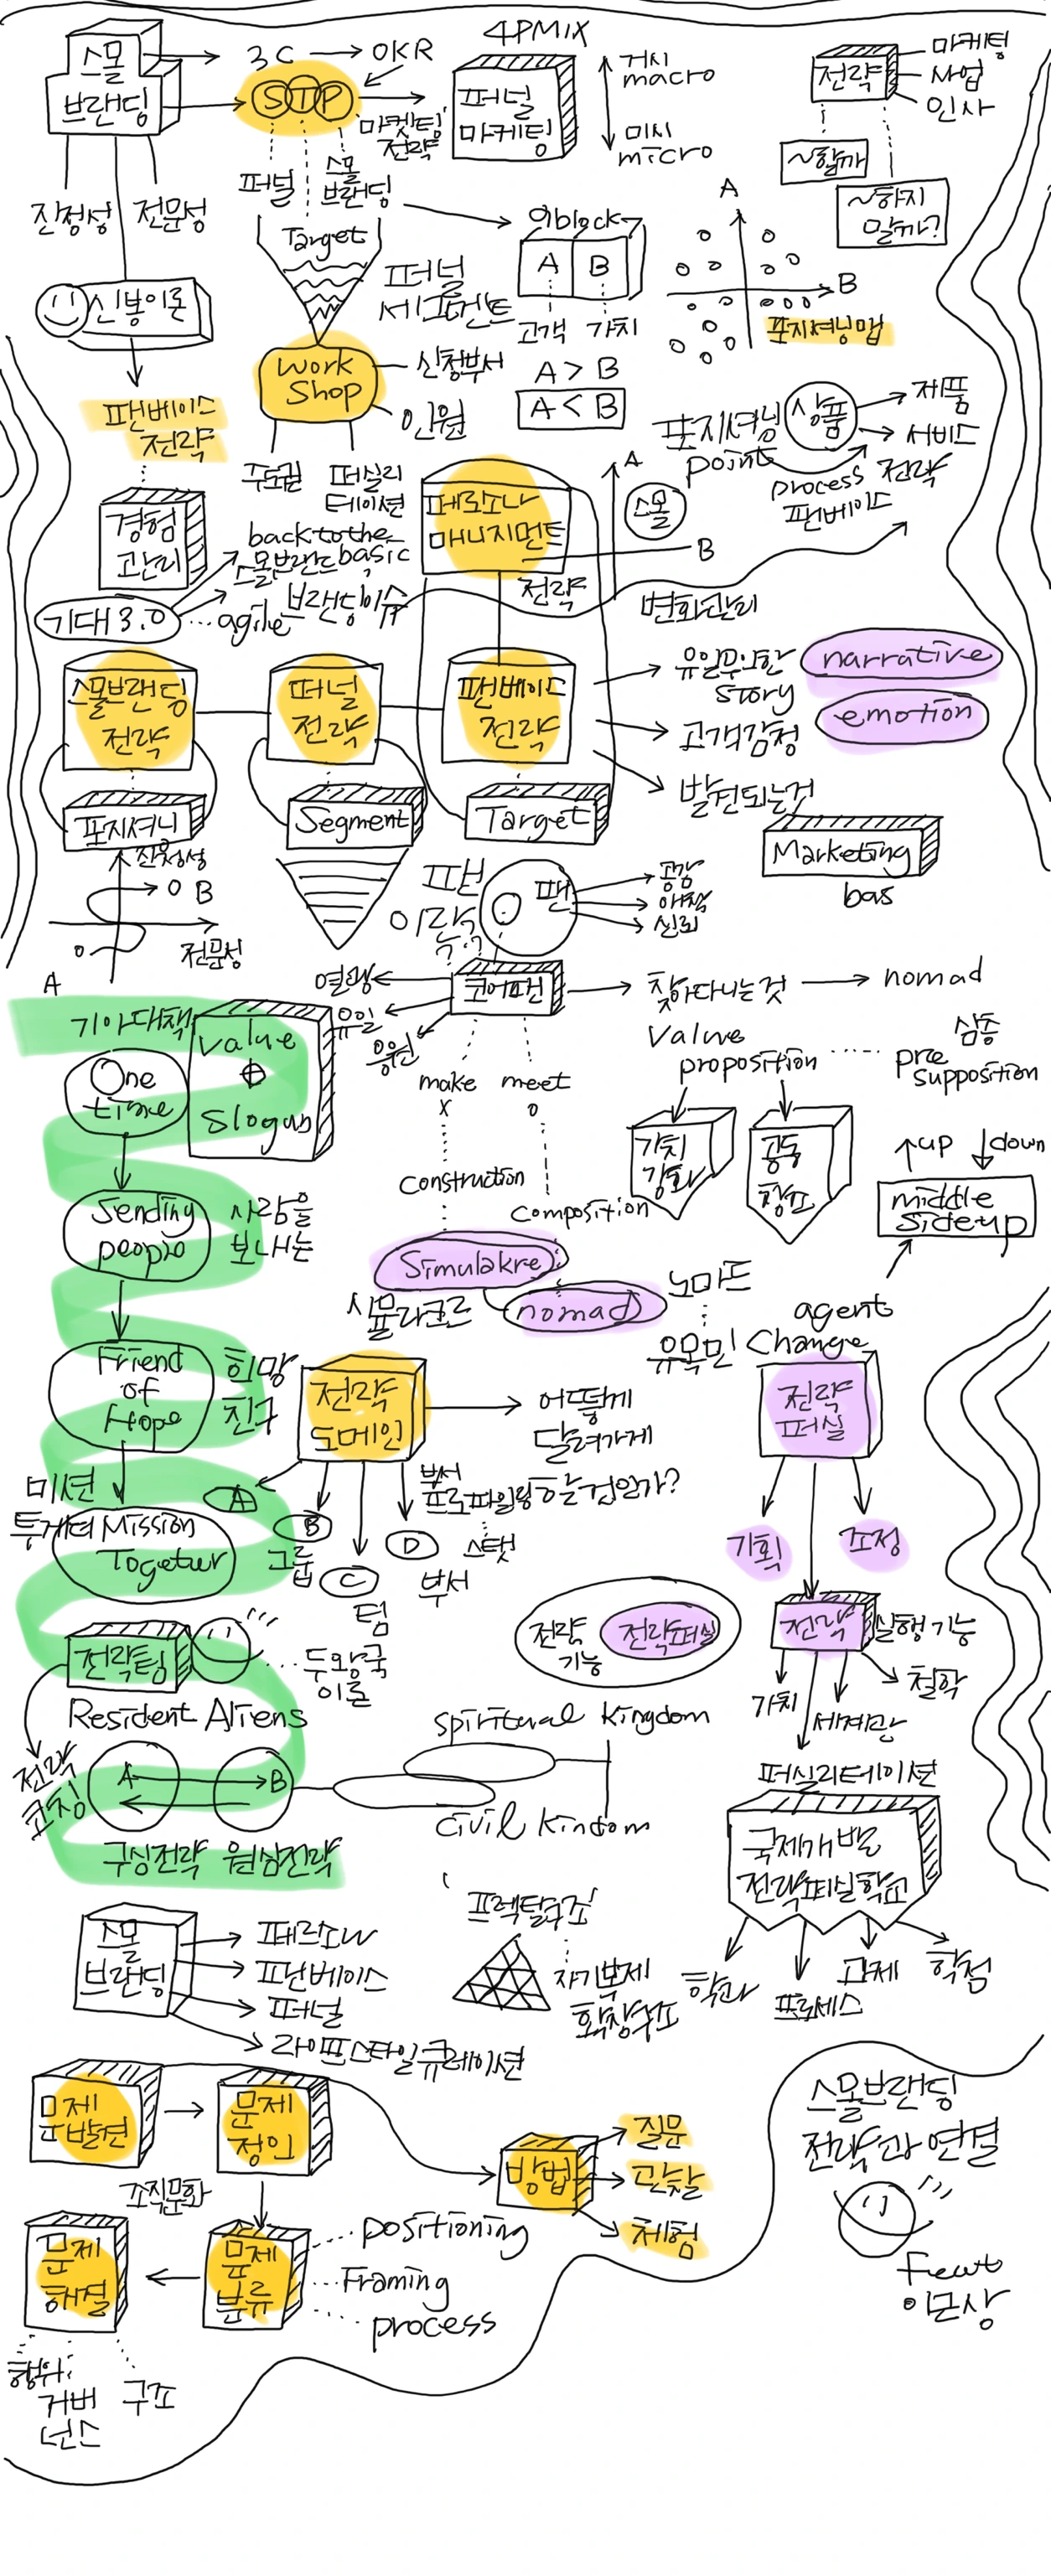 스몰
브랜딩
3C
OKR
STP
마켓팅
전략
4PMIX
퍼널
마케팅
거시
macro
미시
micro
전략
마케팅
사업
인사
~할까
~하지
말까?
진정성
전문성
퍼널
스몰
브랜딩
Target
퍼널
세그먼트
9block
A
B
고객
가치
A > B
A < B
A
B
포지셔닝맵
신봉이론
Work
Shop
신청부서
인원
주도권
퍼실리
테이션
팬베이스
전략
경험
관리
포지셔닝
point
상품
제품
서비스
process
전략
팬베이스
페르소나
매니지먼트
전략
A
스몰
B
back to the
basic
스몰브랜드
기대 3.0
agile
브랜딩이슈
변화관리
스몰브랜딩
전략
퍼널
전략
팬베이스
전략
유일무이한
story
narrative
고객감정
emotion
발견되는것
포지셔닝
Segment
Target
Marketing
bas
진정성
B
전문성
A
팬
이란
팬
공감
애착
신뢰
코어팬
열광
유일
응원
찾아다니는것
nomad
make
meet
x
o
Value
proposition
pre
supposition
삼층
가치
강화
공동
창조
up
down
middle
side up
construction
composition
Simulakre
시뮬라크르
nomad
노마드
유목민
기아대책
Value
Slogun
One
time
Sending
people
사람을
보내는
Friend
of
Hope
희망
친구
미션
투게더
Mission
Togetur
전략
도메인
어떻게
달려가게
하는 것인가?
부서
프로파일링
스탯
A
B
그룹
C
팀
D
부서
agent
Change
전략
퍼실
기획
조정
전략
실행기능
가치
세계관
철학
전략
기능
전략퍼실
전략팀
두왕국
이론
Resident Aliens
전략
코칭
A
B
구심전략
원심전략
spiritural kingdom
civil kindom
퍼실리테이션
국제개발
전략퍼실학교
학과
프로세스
과제
학점
스몰
브랜딩
페르소나
팬베이스
퍼널
라이프스타일큐레이션
프렉탈구조
자기복제
확장구조
문제
발견
문제
정의
조직문화
방법
질문
관찰
체험
문제
해결
문제
분류
positioning
Framing
process
행위
거버
넌스
구조
스몰브랜딩
전략과 연결
이문상